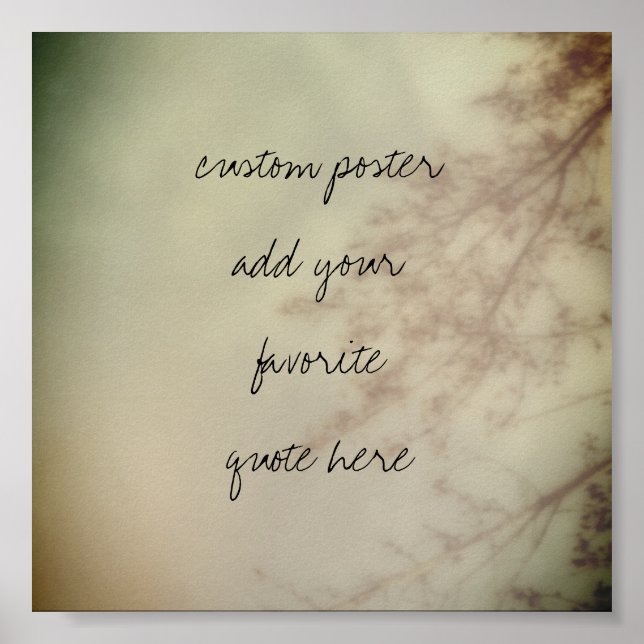 custom poster
add your
favorite
quote here